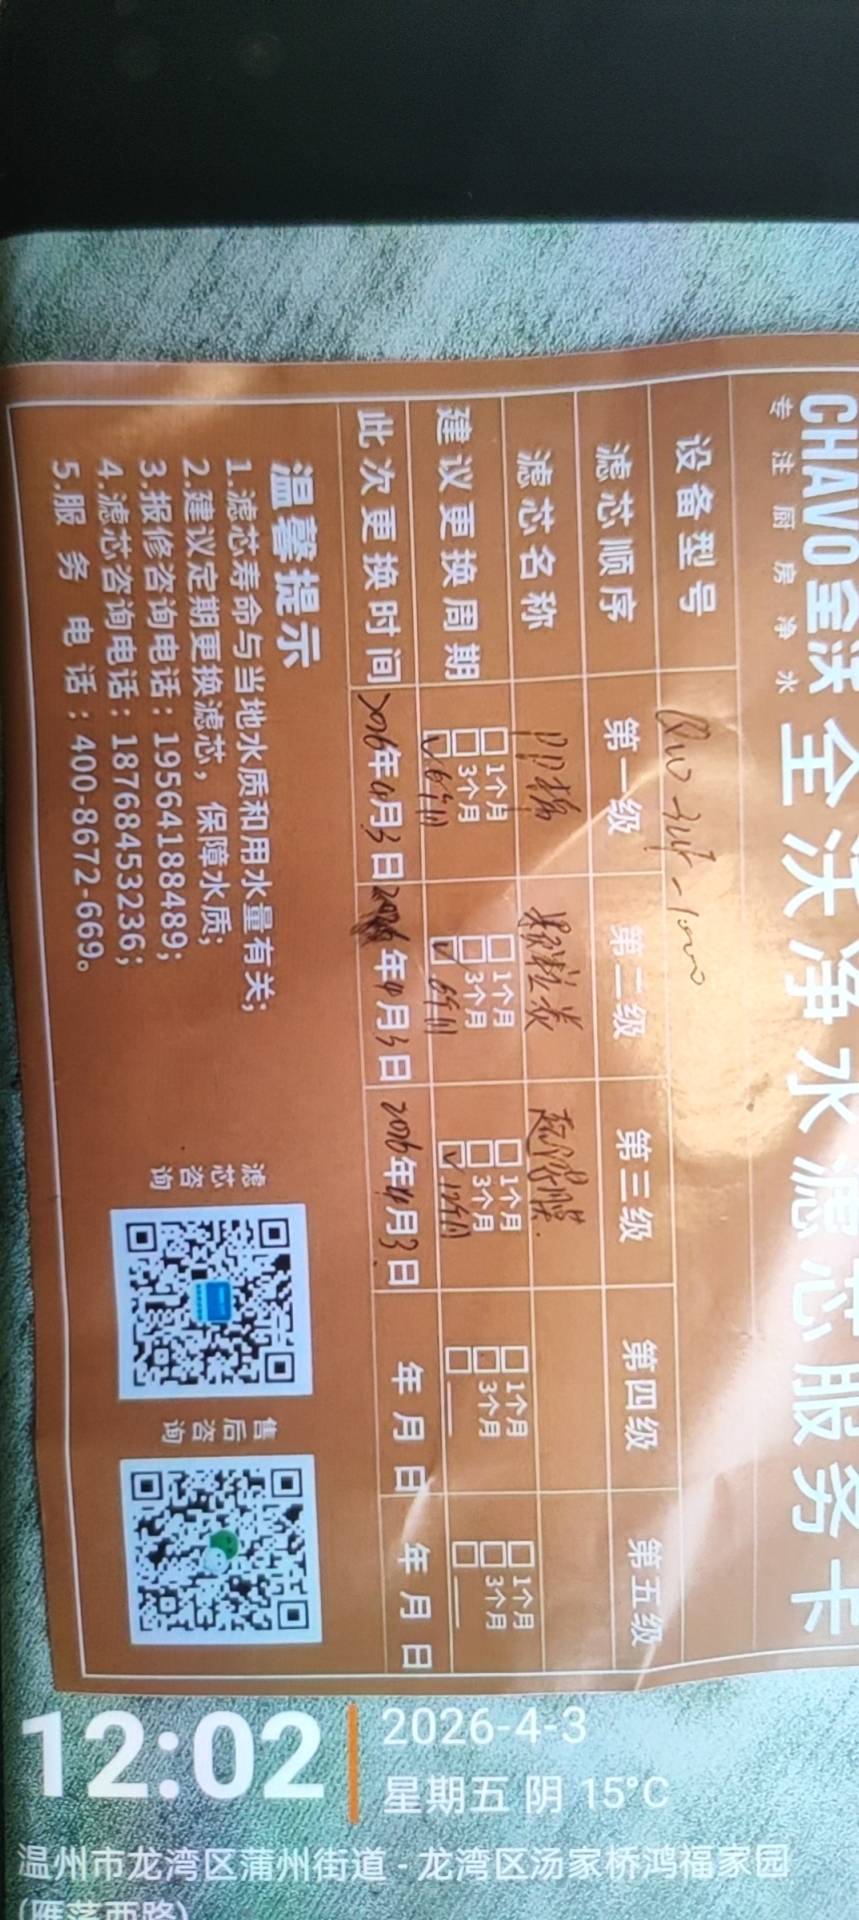 CHAVO全沃
专注厨房净水
全沃净水滤芯服务卡
设备型号
滤芯顺序 第一级 第二级 第三级 第四级 第五级
滤芯名称 PP棉 颗粒炭 超滤膜
建议更换周期 1个月 1个月 1个月 1个月 1个月
3个月 3个月 3个月 3个月 3个月
6个月 6个月 12个月
此次更换时间 2026年4月3日 2026年4月3日 2026年4月3日 年月日 年月日
温馨提示
1.滤芯寿命与当地水质和用水量有关;
2.建议定期更换滤芯，保障水质;
3.报修咨询电话：19564188489;
4.滤芯咨询电话：18768453236;
5.服务电话：400-8672-669。
滤芯咨询
售后咨询
12:02
2026-4-3
星期五 阴 15°C
温州市龙湾区蒲州街道 - 龙湾区汤家桥鸿福家园
(雁荡西路)